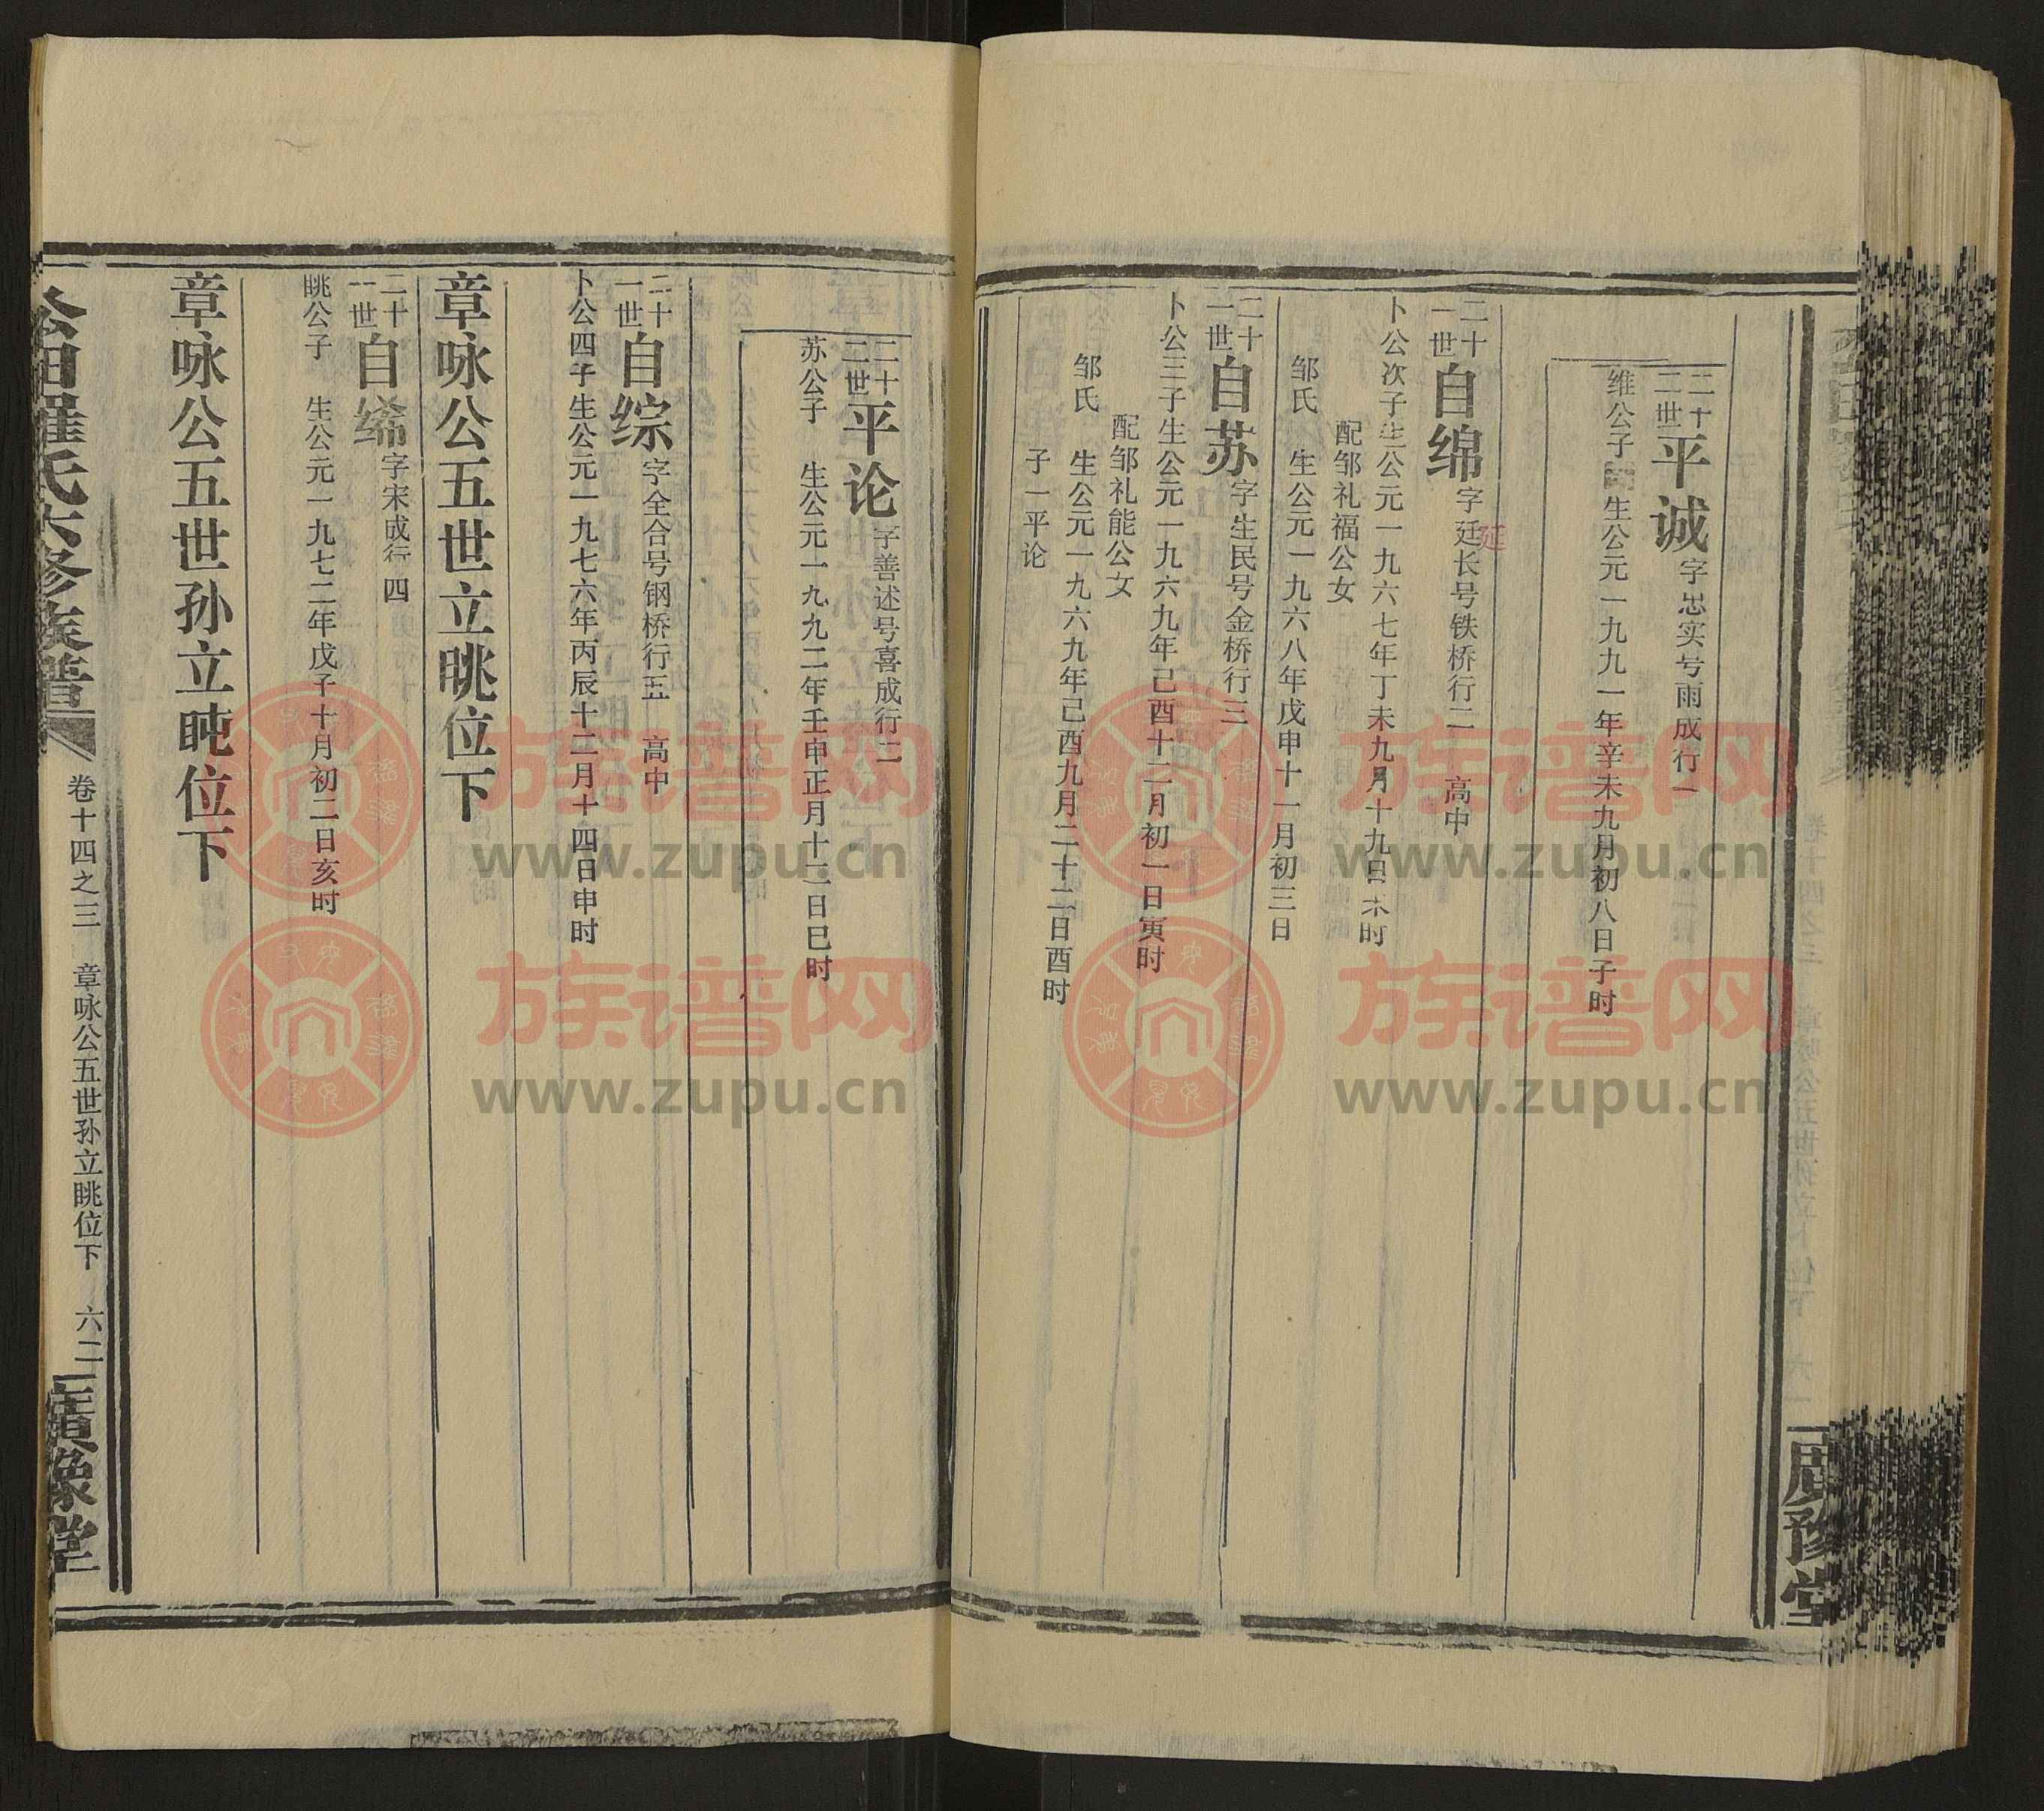 二十二世 平诚 字忠实号雨成行一
维公子 生公元一九九一年辛未九月初八日子时
二十一世 自绵 字廷长号铁桥行二 高中
延
卜公次子生公元一九六七年丁未九月十九日未时
配邹礼福公女
邹氏 生公元一九六八年戊申十一月初三日
二十一世 自苏 字生民号金桥行三
卜公三子生公元一九六九年己酉十二月初一日寅时
配邹礼能公女
邹氏 生公元一九六九年己酉九月二十二日酉时
子一平论
廣豫堂
二十二世 平论 字善述号喜成行二
苏公子 生公元一九九二年壬申正月十二日巳时
二十一世 自综 字全合号钢桥行五 高中
卜公四子生公元一九七六年丙辰十二月十四日申时
章咏公五世立眺位下
二十一世 自绵 字宋成行四
眺公子 生公元一九七二年戊子十月初二日亥时
章咏公五世孙立盹位下
氏六修族谱 卷十四之三 章咏公五世孙立眺位下 六二 廣豫堂
族谱网
www.zupu.cn
族谱网
www.zupu.cn
族谱网
www.zupu.cn
族谱网
www.zupu.cn